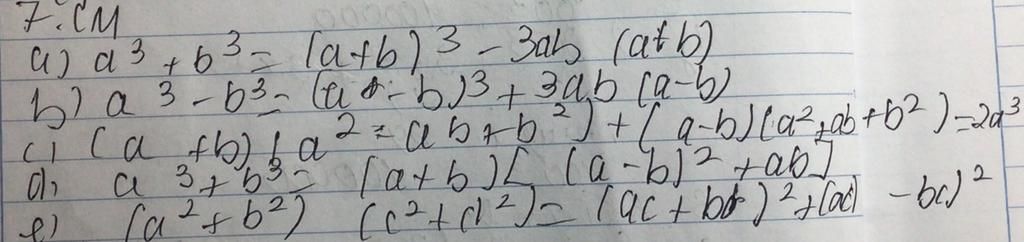 7. CM
a) a³ + b³ = (a+b)³ - 3ab (a+b)
b) a³ - b³ = (a - b)³ + 3ab (a-b)
c) (a + b) (a² = ab + b²) + (a-b)(a² + ab + b²) = 2a³
d) a³ + b³ = (a+b) [ (a-b)² + ab]
e) (a² + b²) (c² + d²) = (ac + bd)² + (ad - bc)²